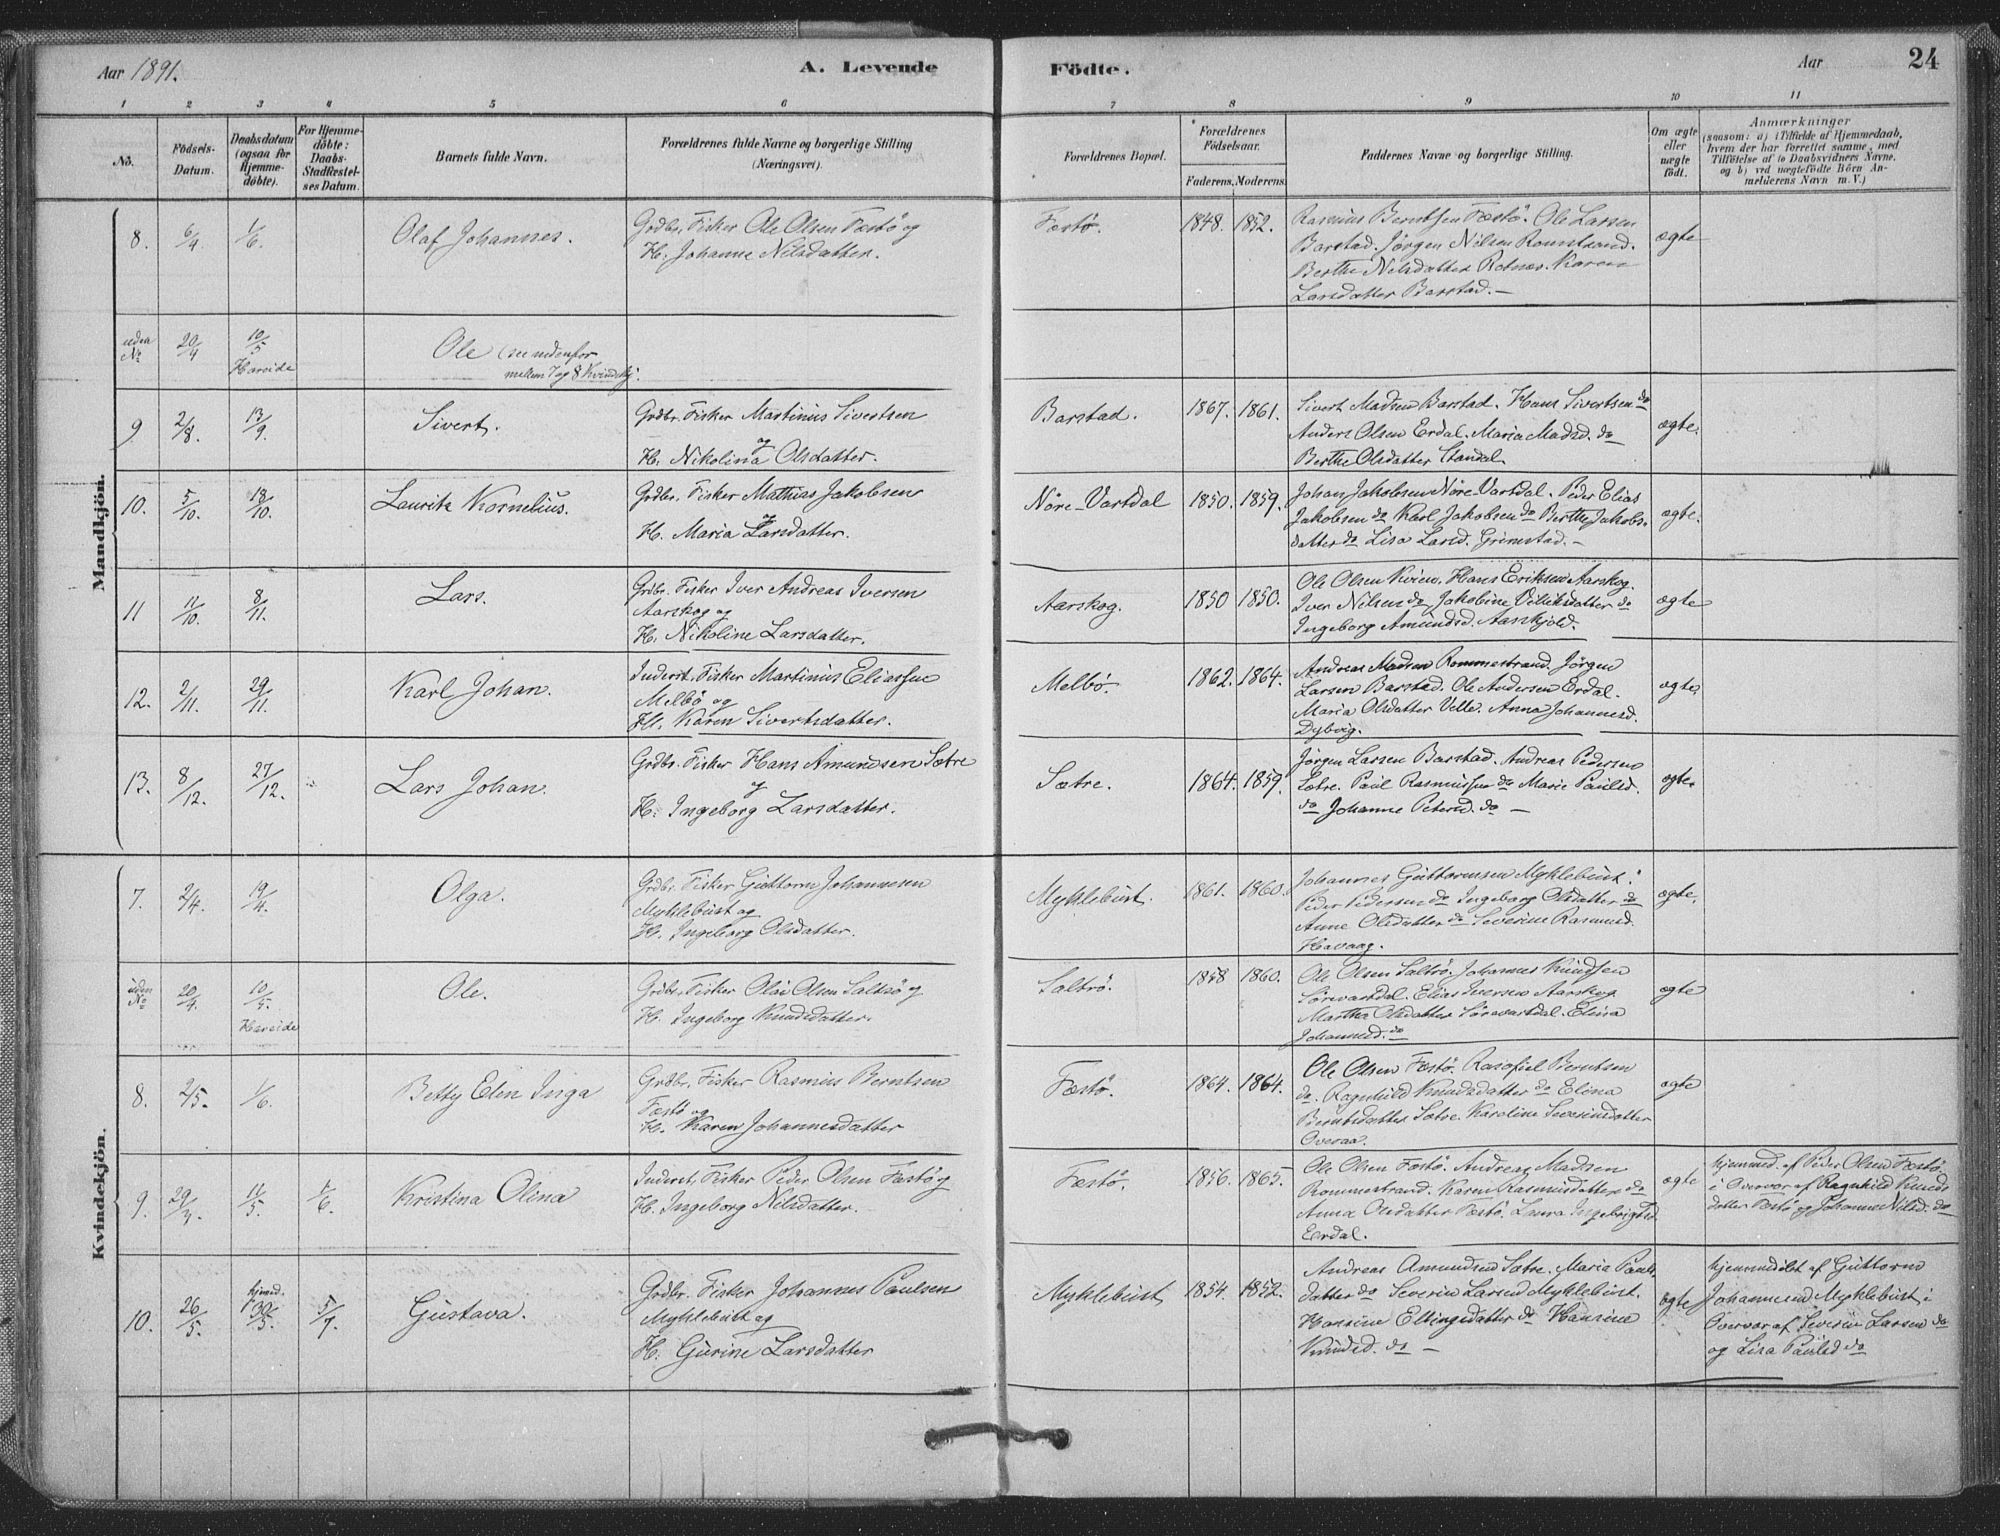 Aar 1891.
A. Levende
Födte.
Aar
24
1
2
3
4
5
6
7
8
9
10
11
No.
Födsels-
Datum.
Daabsdatum
(ogsaa for
Hjemme-
döbte).
For Hjemme-
döbte:
Daabs-
Stadfæstel-
ses Datum.
Barnets fulde Navn.
Forældrenes fulde Navne og borgerlige Stilling
(Næringsvei).
Forældrenes Bopæl.
Forældrenes
Födselsaar.
Faderens. Moderens.
Faddernes Navne og borgerlige Stilling.
Om ægte
eller
uægte
födt.
Anmærkninger
(saasom: a) i Tilfælde af Hjemmedaab,
hvem der har forrettet samme, med
Tilföielse af to Daabsvidners Navne,
og b) ved uægtefödte Börn An-
melderens Navn m. V.)
Mandkjön.
8. 6/4 1/6. Olaf Johannes.
Grdbr. Fisker Ole Olsen Fæstö og
H. Johanne Nilsdatter.
Fæstö. 1848. 1852.
Rasmus Berntsen Fæstö. Ole Larsen
Barstad. Jörgen Nilsen Romstrand.
Berthe Nilsdatter Retnes. Karen
Larsdatter Barstad. –
ægte
uden
No 20/4 10/5
Hareide
Ole (se nedenfor
mellem 7 og 8 Kvindekj.
9 2/8. 13/9. Sivert.
Grdbr. Fisker Martinus Sivertsen
og
H. Nikolina Olsdatter.
Barstad. 1867. 1861.
Sivert Madsen Barstad. Hans Sivertsen do
Anders Olsen Erdal. Maria Madsd. do
Berthe Olsdatter Standal.
ægte.
10. 5/10. 18/10. Lauritz Kornelius.
Grdbr. Fisker Mathias Jakobsen
og
H. Maria Larsdatter.
Nöre-Vartdal 1850. 1859.
Johan Jakobsen Nöre-Vartdal. Peder Elias
Jakobsen do Karl Jakobsen do Berthe Jakobs-
datter do Lisa Larsd. Grimstad. –
ægte.
11 11/10. 8/11. Lars.
Grdbr. Fisker Iver Andreas Iversen
Aarskog og
H. Nikoline Larsdatter.
Aarskog. 1850 1850.
Ole Olsen Kvien. Hans Eriksen Aarskog.
Iver Nilsen do Jakobine Didriksdatter do
Ingeborg Amundsd. Aarskjold.
ægte
12. 2/11. 29/11. Karl Johan.
Inderst. Fisker Martinus Eliassen
Melbö og
H. Karen Sivertsdatter.
Melbö. 1862. 1864.
Andreas Madsen Rommestrand. Jörgen
Larsen Barstad. Ole Andersen Erdal.
Maria Olsdatter Velle. Anna Johannesd.
Dybvig.
ægte.
13. 8/12. 27/12. Lars Johan.
Grdbr. Fisker Hans Amundsen Sætre
og
H. Ingeborg Larsdatter.
Sætre. 1864. 1859.
Jörgen Larsen Barstad. Andreas Pedersen
Sætre. Paul Rasmussen do Marie Paulsd.
do Johanne Petersd. do –
ægte.
Kvindekjön.
7. 2/4. 19/4. Olga.
Grdbr. Fisker Guttorm Johannesen
Myklebust og
H. Ingeborg Olsdatter.
Myklebust. 1861. 1860.
Johannes Guttormsen Myklebust.
Peder Pedersen do Ingeborg Olsdatter do
Anne Olsdatter do Severine Rasmusd.
Havaag.
ægte.
uden
No 20/4. 10/5.
Hareide
Ole.
Grdbr. Fisker Olai Olsen Saltrö og
H. Ingeborg Knudsdatter.
Saltrö. 1858 1860.
Ole Olsen Saltrö. Johannes Knudsen
Sörevartdal. Elias Iversen Aarskog
Martha Olsdatter Sörevartdal. Elina
Johannesd. do
ægte
8. 2/5. 1/6. Betty Elen Inga
Grdbr. Fisker Rasmus Berntsen
Fæstö og
H. Karen Johannesdatter
Fæstö. 1864. 1864.
Ole Olsen Fæstö. Rasofiel Berntsen
do. Ragnhild Knudsdatter do Elina
Berntsdatter Sætre. Karoline Severinsdatter
Overaa.
ægte
9. 29/4. 11/5. 1/6. Kristina Olina
Inderst. Fisker Peder Olsen Fæstö og
H. Ingeborg Nilsdatter.
Fæstö. 1856. 1865.
Ole Olsen Fæstö. Andreas Madsen
Rommestrand. Karen Rasmusdatter do
Anna Olsdatter Fæstö. Laura Ingebrigtsd.
Erdal.
ægte
hjemmed. af Peder Olsen Fæstö
i Overvær af Ragnhild Knuds-
datter Fæstö og Johanne Nilsd. do
10. 26/5. hjemmed.
30/5. 5/7. Gustava.
Grdbr. Fisker Johannes Paulsen
Myklebust og
H. Gurine Larsdatter
Myklebust 1854. 1852.
Andreas Amundsen Sætre. Maria Pauls-
datter do Severin Larsen Myklebust.
Hansine Ellingsdatter do Hansine
Knudsd. do –
ægte
hjemmedöbt af Guttorm
Johannesen Myklebust i
Overvær af Severin Larsen do
og Lisa Paulsd do